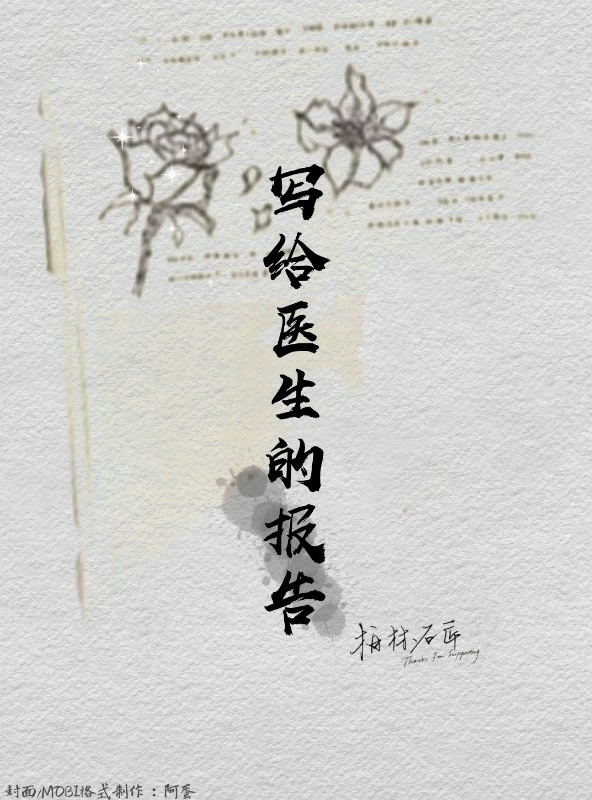 写给医生的报告
柟林石匠
Thanks For Supporting
封面/MOBI格式制作：阿蛋